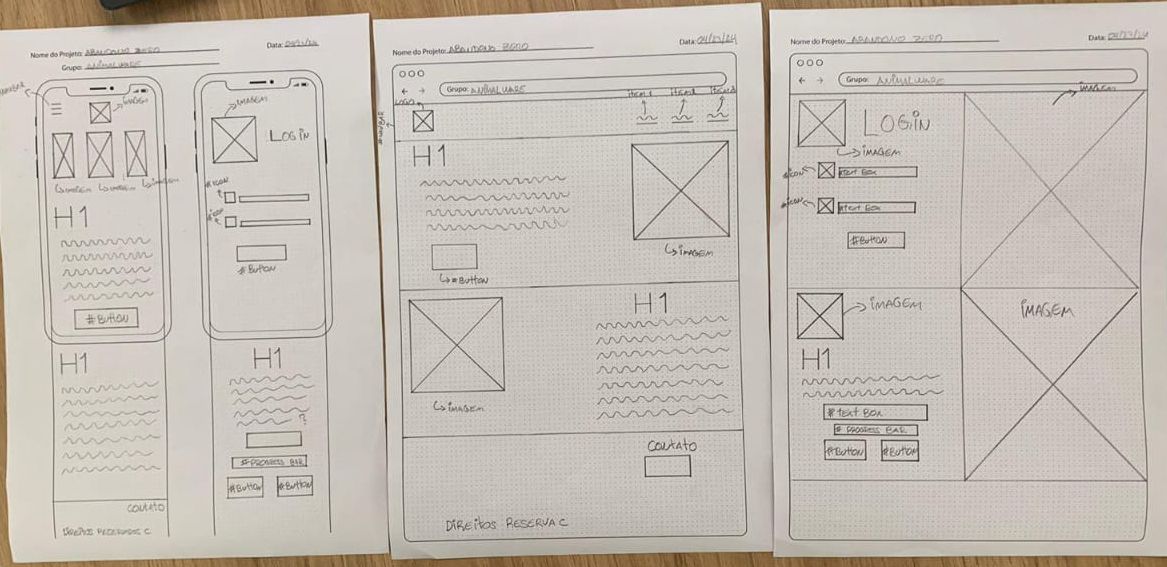 Nome do Projeto: ABANDONO ZERO
Data:
Grupo: ANIMAL WARE
IMAGEM
IMAGEM
IMAGEM
IMAGEM
H1
#BUTTON
H1
CONTATO
DIREITOS RESERVADOS C
IMAGEM
LOGIN
#ICON
#ICON
#BUTTON
H1
?
#PROGRESS BAR
#BUTTON
#BUTTON
Nome do Projeto: ABANDONO ZERO
Data: 04/12/24
Grupo: ANIMAL WARE
LOGO
#NAVBAR
ITEM 1
ITEM 2
ITEM 3
H1
#BUTTON
IMAGEM
IMAGEM
H1
CONTATO
DIREITOS RESERVA C
Nome do Projeto: ABANDONO ZERO
Data: 04/12/24
Grupo: ANIMAL WARE
IMAGEM
LOGIN
IMAGEM
#ICON
#TEXT BOX
#ICON
#TEXT BOX
#BUTTON
IMAGEM
IMAGEM
H1
#TEXT BOX
# PROGRESS BAR
#BUTTON
#BUTTON